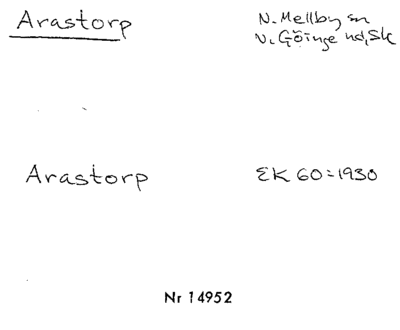 Arastorp
N. Mellby sn
V. Göinge hd, Sk
Arastorp
EK 60 = 1930
Nr 14952